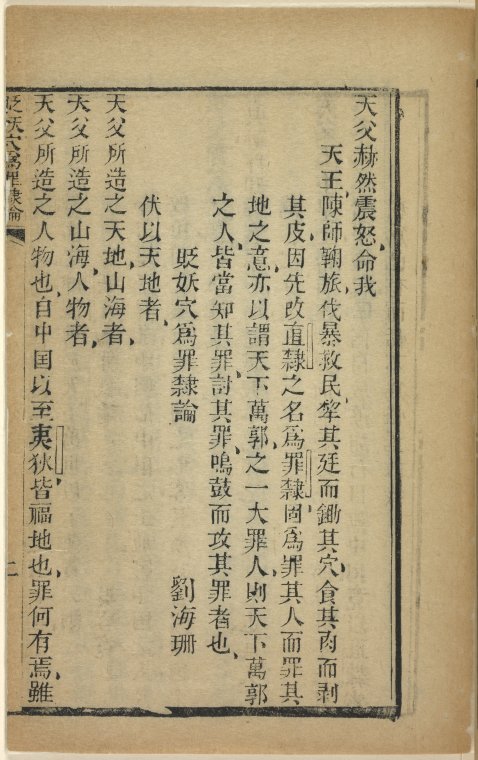 天父赫然震怒命我
天王陳師鞠旅伐暴救民犂其廷而鋤其穴食其肉而剥
其皮因先改直隸之名爲罪隸固爲罪其人而罪其
地之意亦以謂天下萬郭之一大罪人則天下萬郭
之人皆當知其罪討其罪鳴鼓而攻其罪者也
貶妖穴爲罪隸論
劉海珊
伏以天地者
天父所造之天地山海者
天父所造之山海人物者
天父所造之人物也自中囯以至夷狄皆福地也罪何有焉雖
貶妖穴爲罪隸論
二